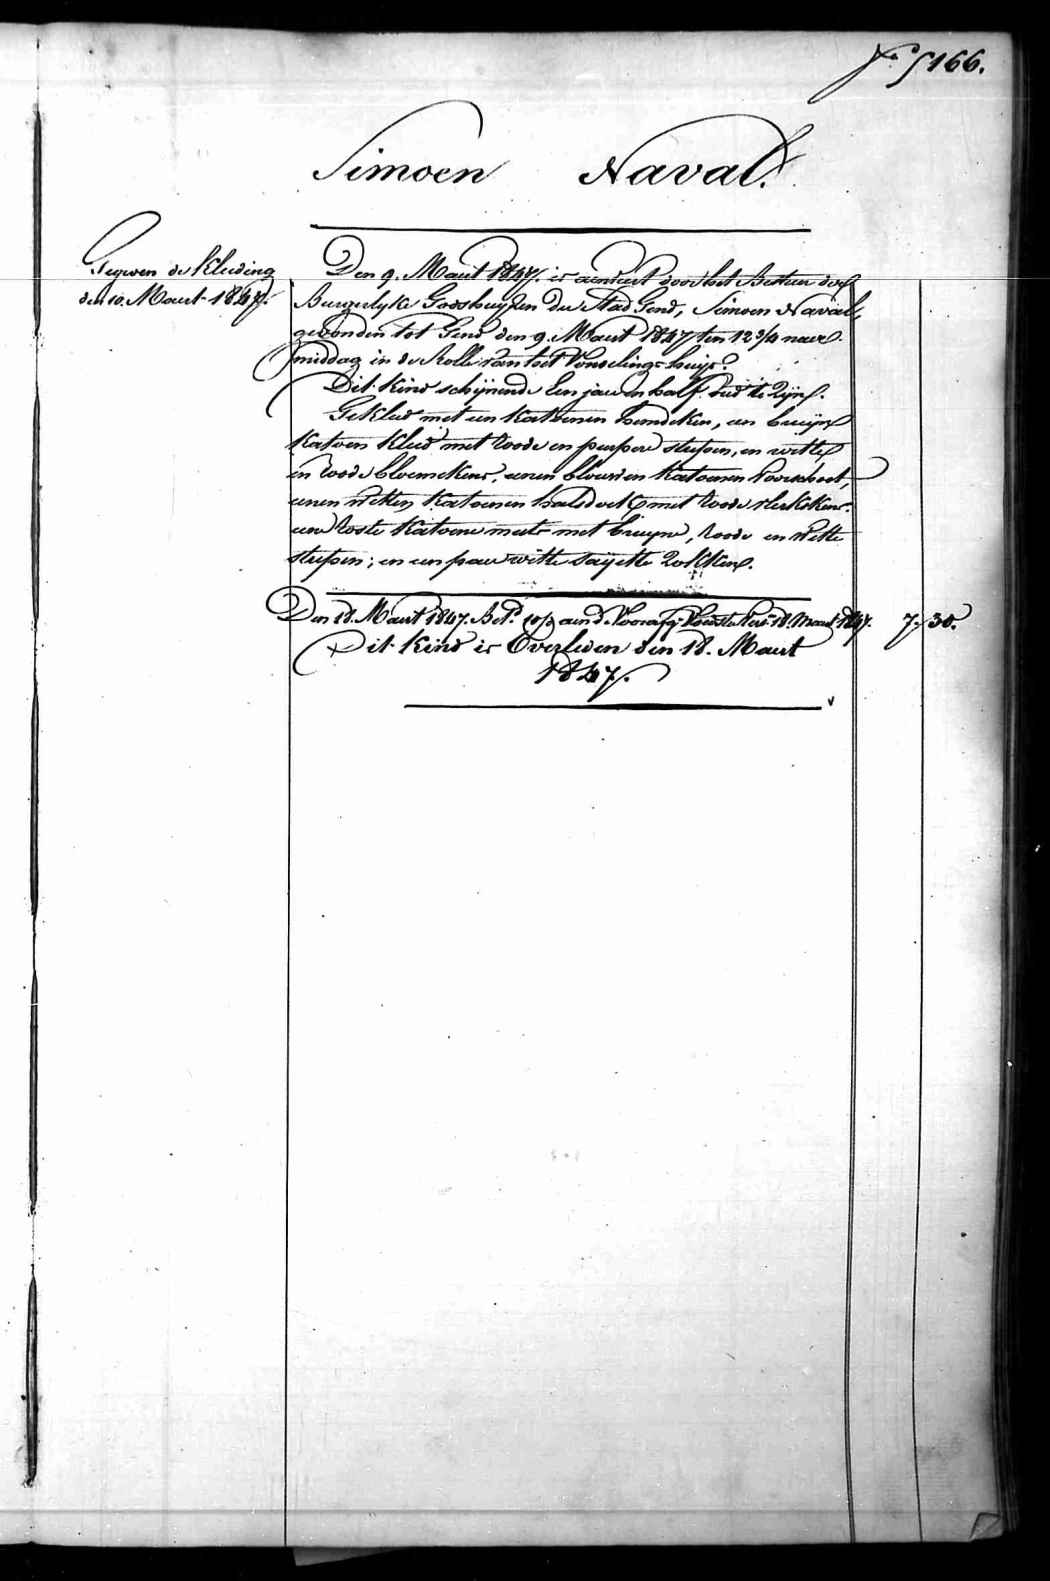 Fo 166.
Simoen Naval.
Gegeven de Kleeding
den 10. Maert 1847.
Den 9. Maert 1847. is aenveert door het Bestuer der
Burgerlyke Godshuyzen der Stad Gend, Simoen Naval,
gevonden tot Gend den 9. Maert 1847 ten 12 3/4 naer
middag in de Rolle van het Vondelings huys.
Dit Kind schijnende Een jaer en half oud te Zijn.
Gekleed met een Katoenen hemdeken, een bruijn
Katoen Kleed met roode en purpere strepen, en witte
en roode bloemekens, eenen blouwen Katoenen voorschoot,
eenen witten Katoenen halsdoek met roode vlekskens
een roste Katoene muts met bruyne, roode en Witte
strepen; en een paer witte Sayette Zokken.
Den 18. Maert 1847. Bet. aen d. 18. Maert 1847. 7, 30.
Dit Kind is Overleden den 18. Maert
1847.